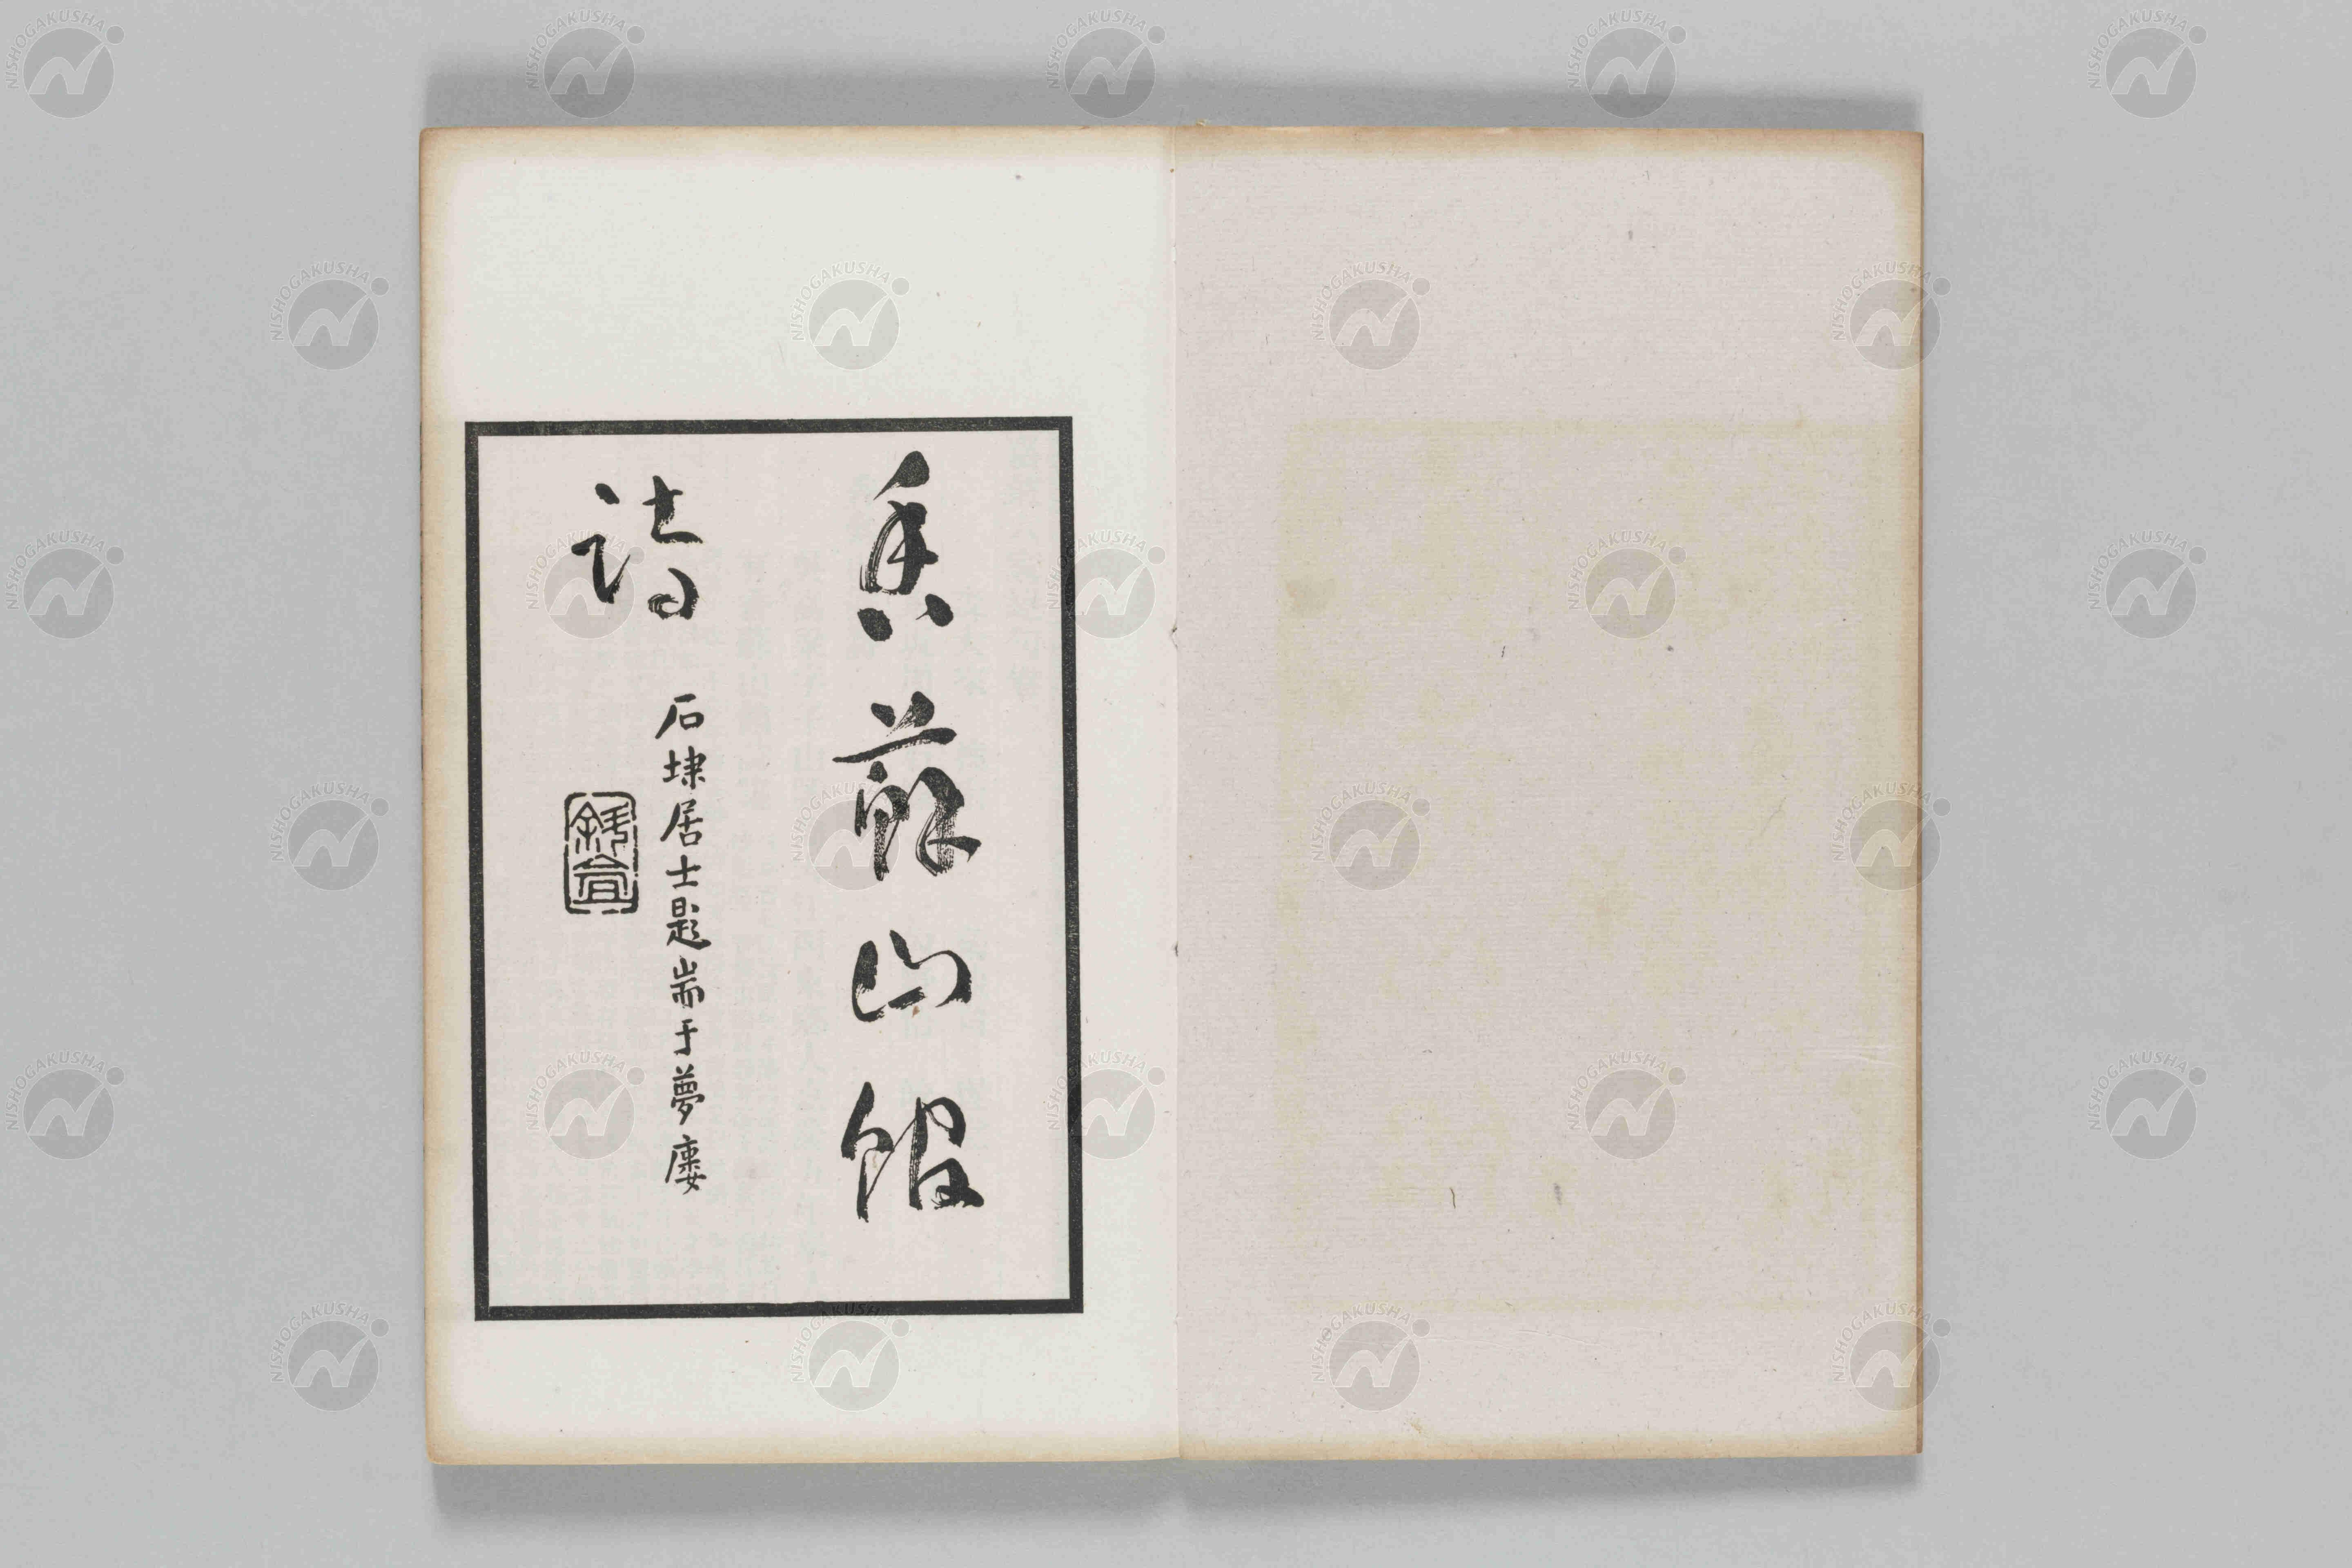 香蘇山館
詩
石埭居士題耑于夢廔
NISHOGAKUSHA